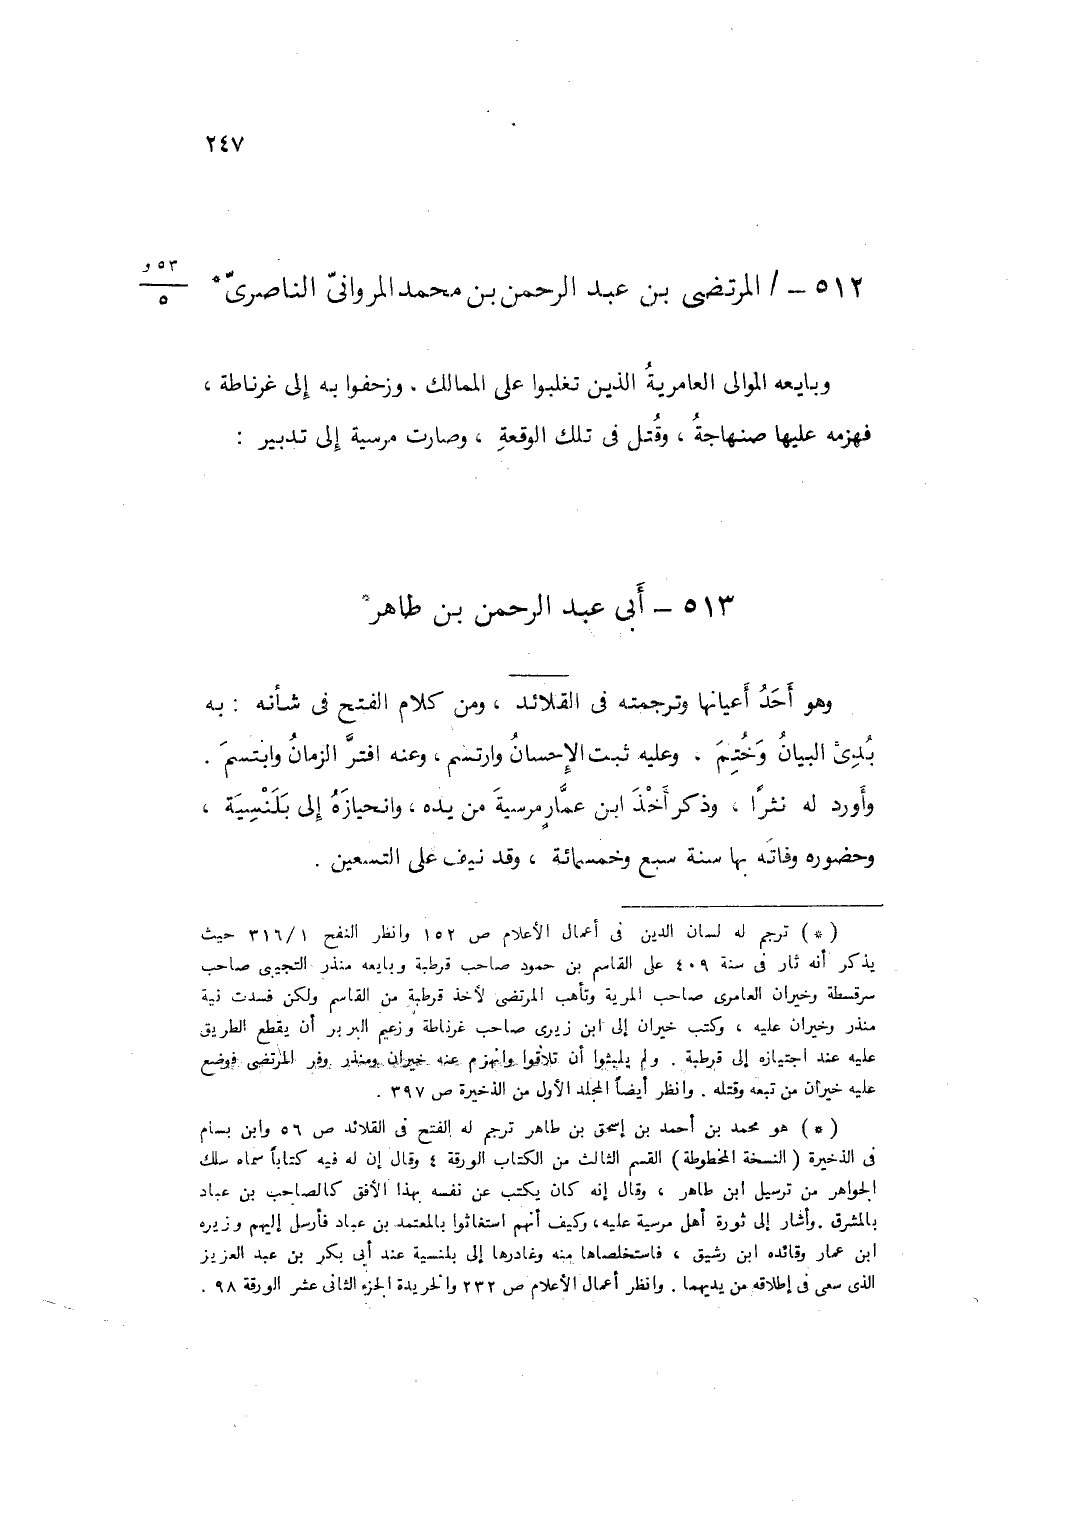 ٢٤٧
٥٣ و
٥
٥١٢ – / المرتضى بن عبد الرحمن بن محمد المروانىّ الناصرىّ*
وبايعه الموالى العامريةُ الذين تغلبوا على الممالك . وزحفوا به إلى غرناطة ،
فهزمه عليها صنهاجةُ ، وقُتل فى تلك الوقعةِ ، وصارت مرسية إلى تدبير :
٥١٣ – أَبى عبد الرحمن بن طاهر*
وهو أَحَدُ أَعيانها وترجمته فى القلائد ، ومن كلام الفتح فى شأنه : به
بُدِئْ البيانُ وَخُتِمَ . وعليه ثبت الإِحسانُ وارتسم ، وعنه افترَّ الزمانُ وابتسمَ .
وأَورد له نثرًا ، وذكر أَخْذَ ابن عمَّارٍ مرسيةَ من يده ، وانحيازَهُ إلى بَلَنْسِيَة ،
وحضوره وفاتَه بها سنة سبع وخمسمائة ، وقد نيف على التسعين .
(*) ترجم له لسان الدين فى أعمال الأعلام ص ١٥٢ وانظر النفح ٣١٦/١ حيث
يذكر أنه ثار فى سنة ٤٠٩ على القاسم بن حمود صاحب قرطبة وبايعه منذر التجيبى صاحب
سرقسطة وخيران العامرى صاحب المرية وتأهب المرتضى لأخذ قرطبة من القاسم ولكن فسدت نية
منذر وخيران عليه ، وكتب خيران إلى ابن زيرى صاحب غرناطة وزعيم البربر أن يقطع الطريق
عليه عند اجتيازه إلى قرطبة . ولم يلبثوا أن تلاقوا وانهزم عنه خيران ومنذر وفر المرتضى فوضع
عليه خيران من تبعه وقتله . وانظر أيضاً المجلد الأول من الذخيرة ص ٣٩٧ .
(*) هو محمد بن أحمد بن إسحق بن طاهر ترجم له الفتح فى القلائد ص ٥٦ وابن بسام
فى الذخيرة (النسخة المخطوطة) القسم الثالث من الكتاب الورقة ٤ وقال إن له فيه كتاباً سماه سلك
الجواهر من ترسيل ابن طاهر ، وقال إنه كان يكتب عن نفسه بهذا الأفق كالصاحب بن عباد
بالمشرق .وأشار إلى ثورة أهل مرسية عليه، وكيف أنهم استغاثوا بالمعتمد بن عباد فأرسل إليهم وزيره
ابن عمار وقائده ابن رشيق ، فاستخلصاها منه وغادرها إلى بلنسية عند أبى بكر بن عبد العزيز
الذى سعى فى إطلاقه من يديهما . وانظر أعمال الأعلام ص ٢٣٢ والخريدة الجزء الثانى عشر الورقة ٩٨ .